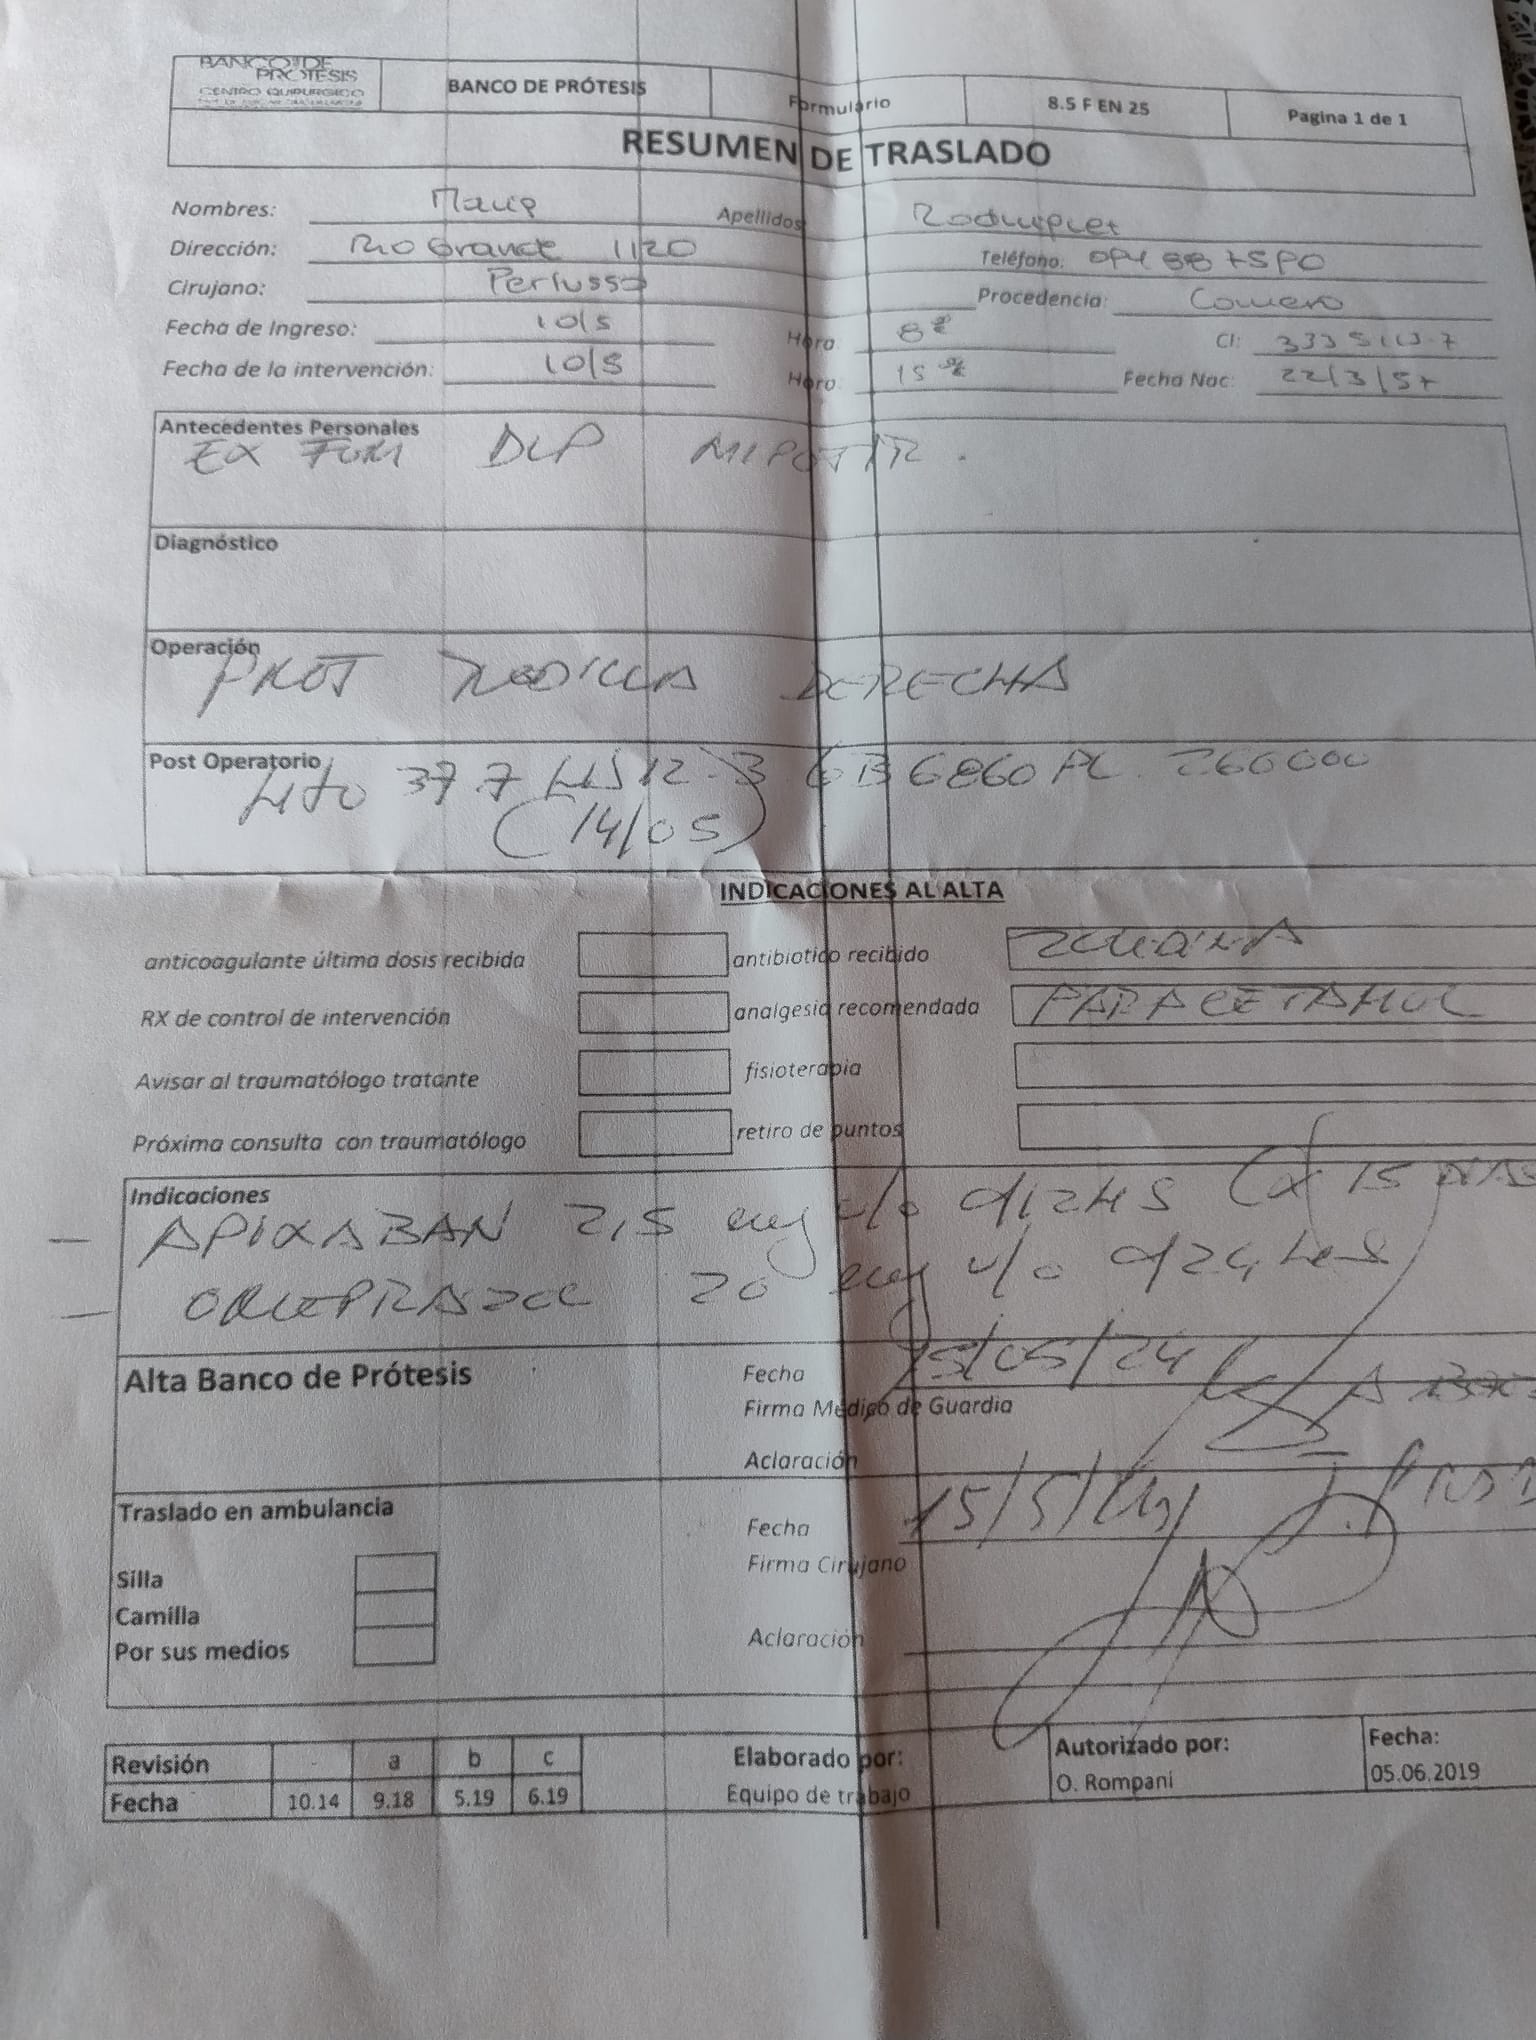 BANCO DE
PROTESIS
CENTRO QUIRURGICO
BANCO DE PRÓTESIS
Formulário
8.5 F EN 25
Pagina 1 de 1
RESUMEN DE TRASLADO
Nombres: Maria Apellidos
Dirección: Rio Grande 1120 Teléfono:
Cirujano: Perfusso Procedencia:
Fecha de Ingreso: 10/5 Hora 8 CI:
Fecha de la intervención: 10/5 Hora: 15 Fecha Nac: 22/3/57
Antecedentes Personales
EX FUM DLP HIPOTIR.
Diagnóstico
Operación
PROT RODILLA DERECHA
Post Operatorio
Hto 37.7 Hb 12.3 GB 6860 PL. 260000
(14/05)
INDICACIONES AL ALTA
anticoagulante última dosis recibida antibiotico recibido
RX de control de intervención analgesia recomendada PARACETAMOL
Avisar al traumatólogo tratante fisioterapia
Próxima consulta con traumatólogo retiro de puntos
Indicaciones
- APIXABAN 2,5 mg v/o c/12 HS (x 15 DIAS
- OMEPRAZOL 20 mg v/o c/24 HS
Alta Banco de Prótesis Fecha 15/05/24
Firma Médico de Guardia
Aclaración
Traslado en ambulancia Fecha 15/5/24
Silla Firma Cirujano
Camilla
Por sus medios Aclaración
Revisión a b c Elaborado por: Autorizado por: Fecha:
Fecha 10.14 9.18 5.19 6.19 Equipo de trabajo O. Rompani 05.06.2019